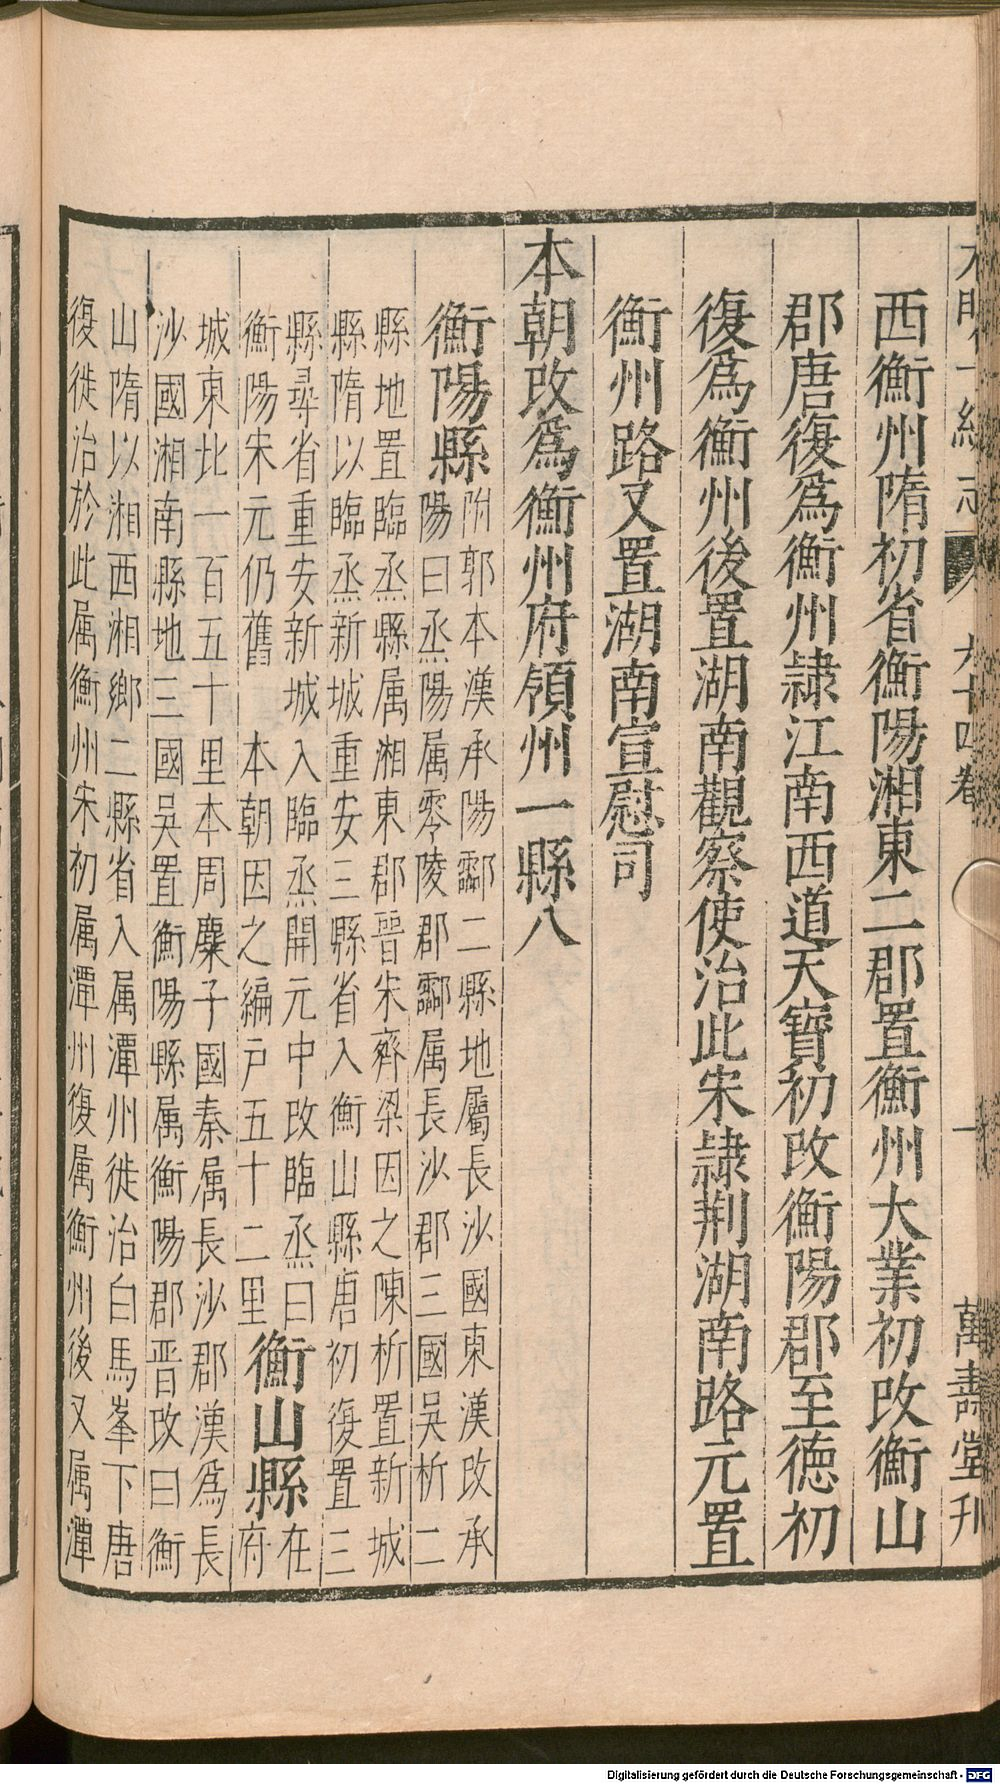 大明一統志 六十四卷 一 萬壽堂刋
西衡州隋初省衡陽湘東二郡置衡州大業初改衡山
郡唐復爲衡州隷江南西道天寶初改衡陽郡至德初
復爲衡州後置湖南觀察使治此宋隷荆湖南路元置
衡州路又置湖南宣慰司
本朝改爲衡州府領州一縣八
衡陽縣
附郭本漢承陽酃二縣地屬長沙國東漢改承
陽曰烝陽属零陵郡酃属長沙郡三國吳析二
縣地置臨烝縣属湘東郡晉宋齊梁因之陳析置新城
縣隋以臨烝新城重安三縣省入衡山縣唐初復置三
縣尋省重安新城入臨烝開元中改臨烝曰
衡陽宋元仍舊 本朝因之編户五十二里
衡山縣
在
府
城東北一百五十里本周麇子國秦属長沙郡漢爲長
沙國湘南縣地三國吳置衡陽縣属衡陽郡晋改曰衡
山隋以湘西湘鄉二縣省入属潭州徙治白馬峯下唐
復徙治於此属衡州宋初属潭州復属衡州後又属潭
Digitalisierung gefördert durch die Deutsche Forschungsgemeinschaft - DFG